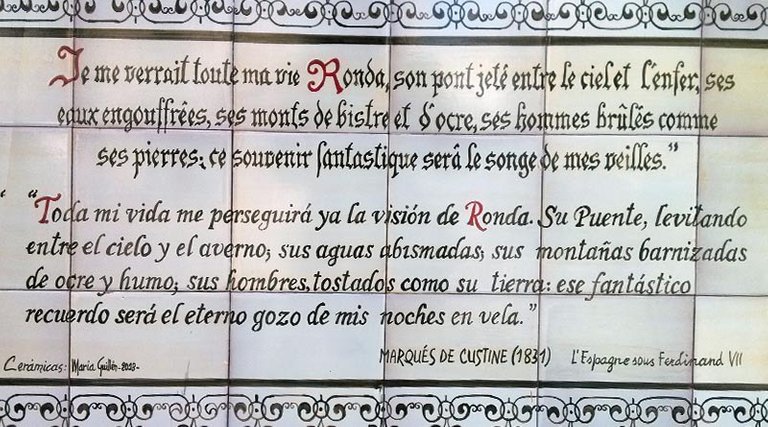 Je me verrait toute ma vie Ronda, son pont jeté entre le ciel et l'enfer, ses
eaux engouffrées, ses monts de bistre et d'ocre, ses hommes brûlés comme
ses pierres; ce souvenir fantastique será le songe de mes veilles."
"Toda mi vida me perseguirá ya la visión de Ronda. Su Puente, levitando
entre el cielo y el averno; sus aguas abismadas; sus montañas barnizadas
de ocre y humo; sus hombres, tostados como su tierra: ese fantástico
recuerdo será el eterno gozo de mis noches en vela."
MARQUÉS DE CUSTINE (1831) L'Espagne sous Ferdinand VII
Cerámicas: María Guillén-2023-